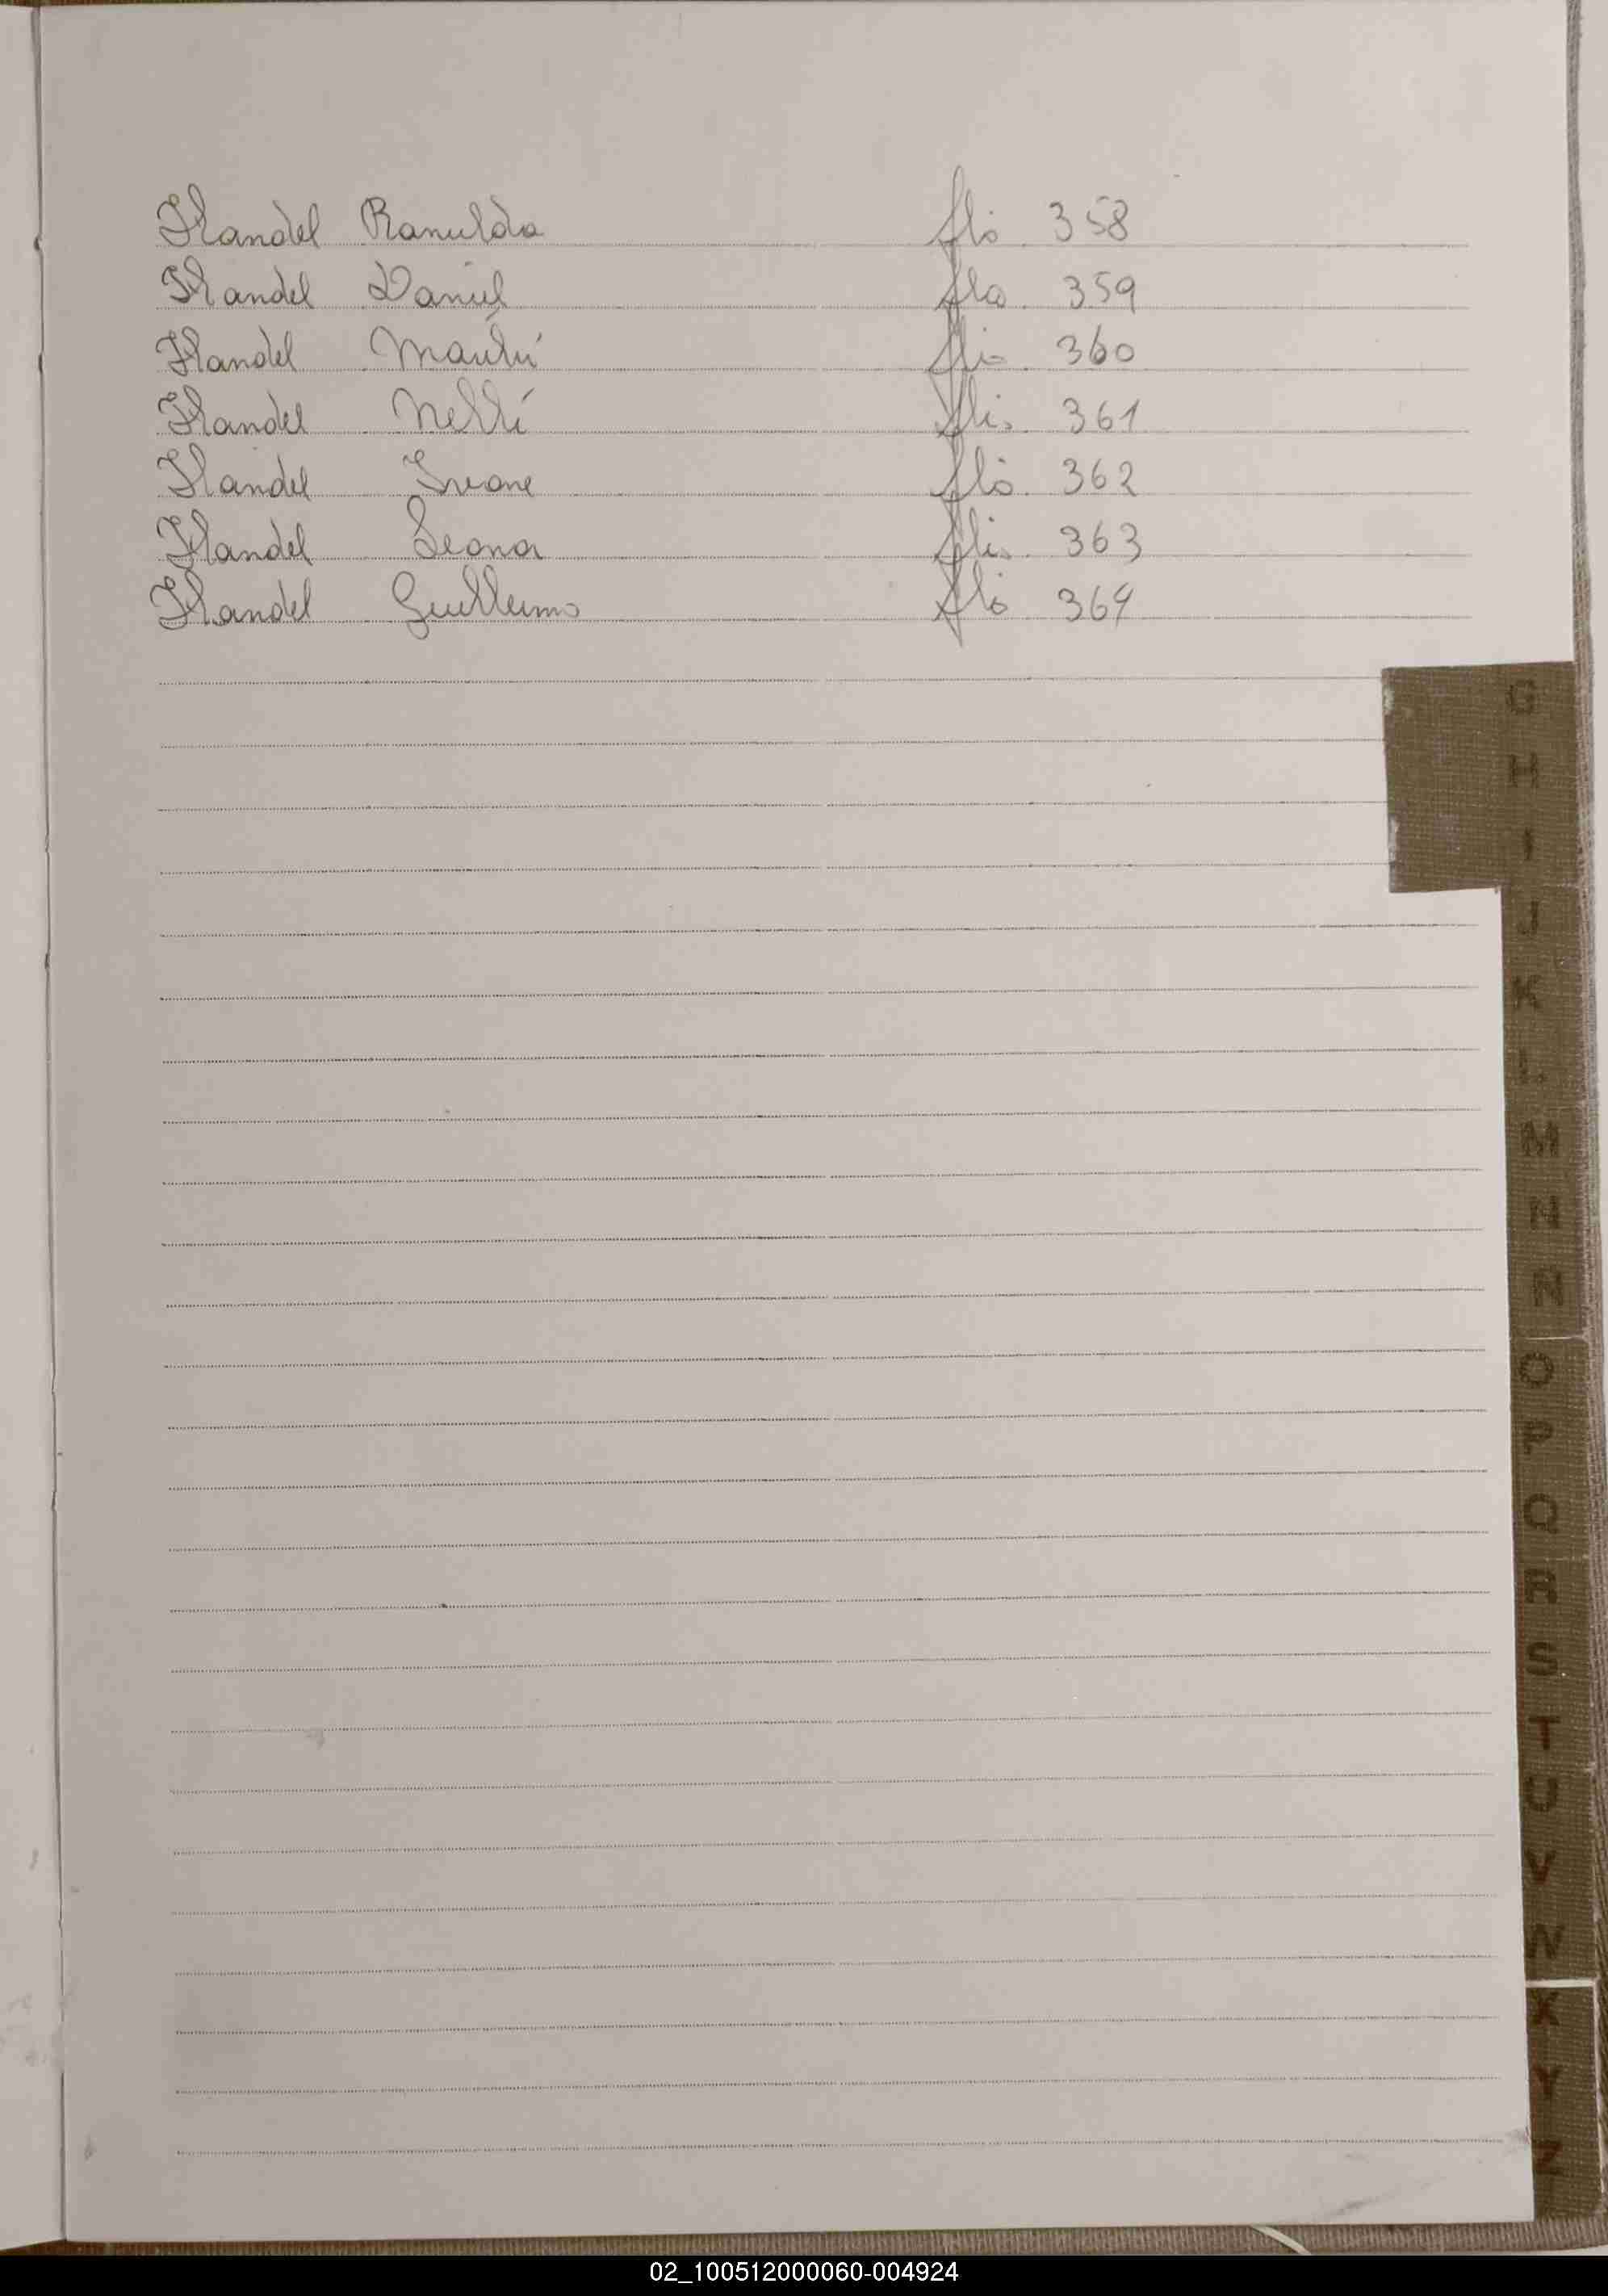 Handel Ranulda flio 358
Handel Daniel flio 359
Handel Marilú flio 360
Handel Nelli flio 361
Handel Ivone flio 362
Handel Leonor flio 363
Handel Guillermo flio 364
G
H
I
J
K
L
M
N
N
O
P
Q
R
S
T
U
V
W
X
Y
Z
02_100512000060-004924